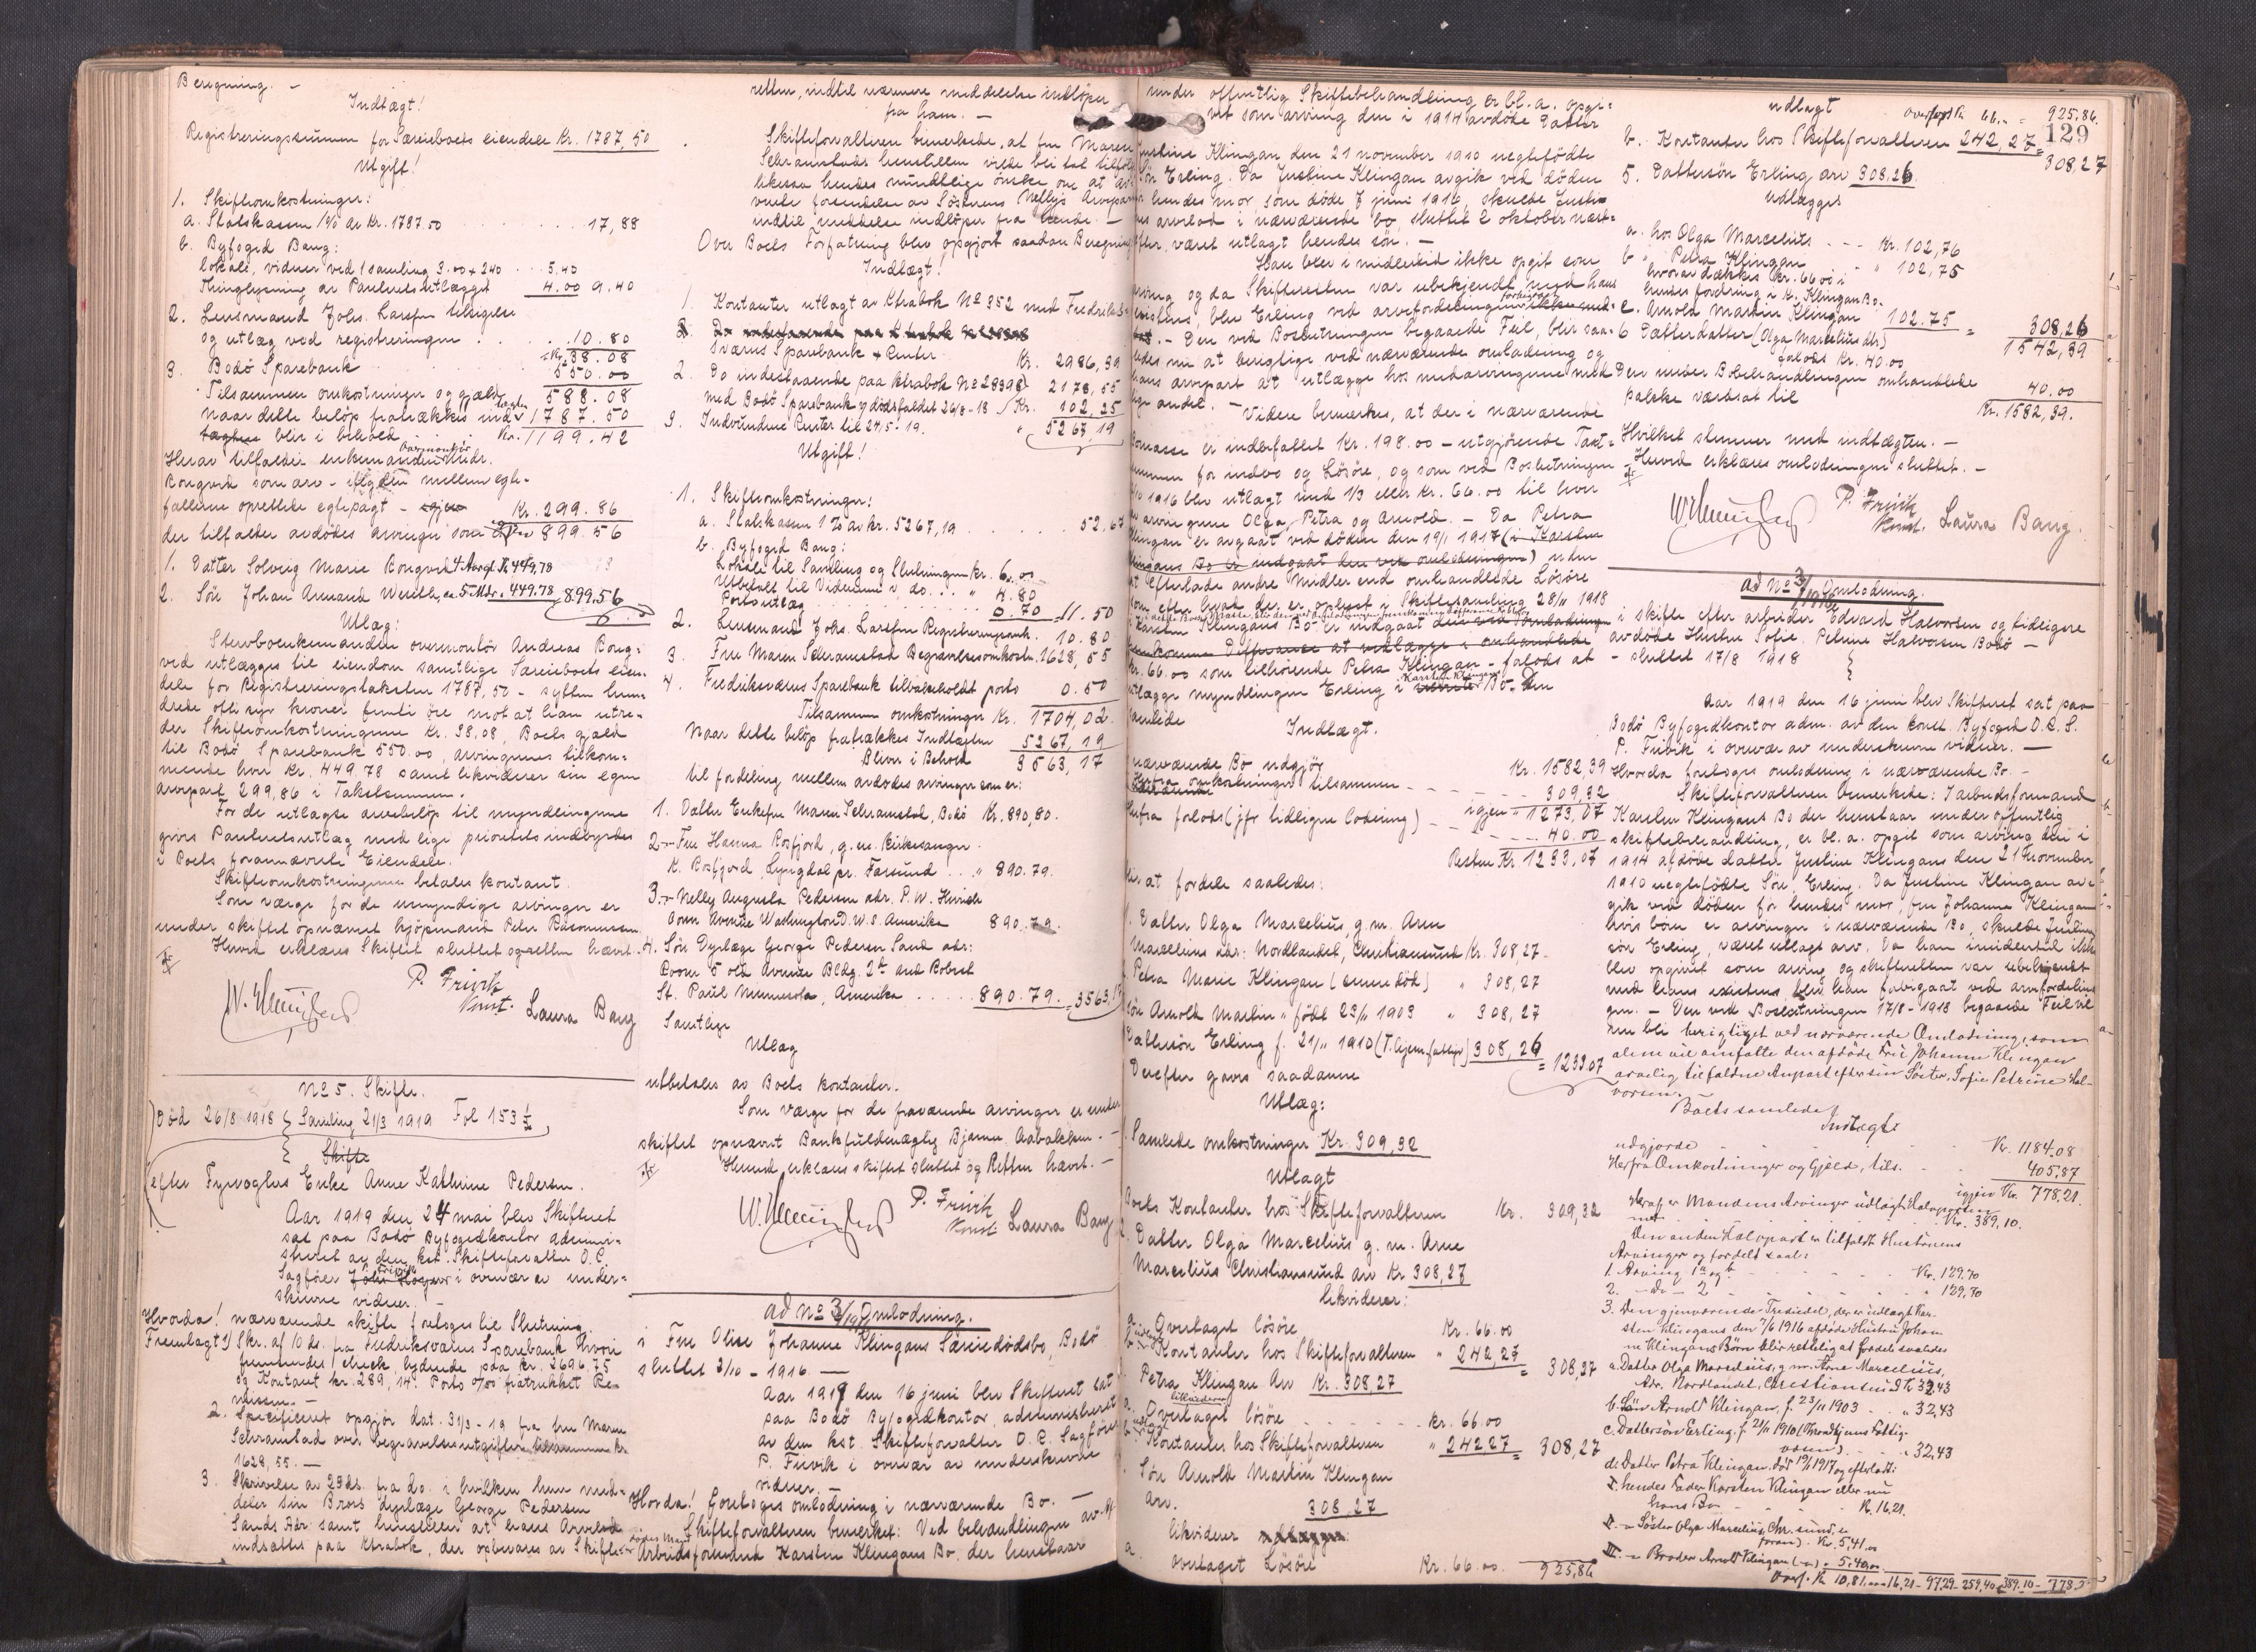 Beregning. –
Indtægt!
Registreringssummen for Særeieboets eiendele Kr. 1787,50
Utgift!
1. Skifteomkostninger:
a. Statskassen 1% av Kr. 1787.50 17,88
b. Byfoged Bang:
lokale, vidner ved 1 samling 3.00 + 240 5.40
Thinglysning av Panteretsutlægget 4.00 9.40
2. Lensmand Johs. Larsen
og utlæg ved registreringen 10.80
Kr. 38.08
3. Bodö Sparebank 550.00
Tilsammen omkostninger og gjæld 588.08
naar dette belöp fratrækkes ind- 1787.50
blir i behold Kr. 1199.42
Herav tilfalder enkemanden Andr.
Rongved som arv – ifölge mellem egte-
fællerne oprettede egtepagt – Kr. 299.86
der tilfalder avdödes arvinger som 899.56
1. Datter Solveig Marie Rongved 4 Aar gl. Kr. 449,78
2. Sön Johan Armand ca. 5 Mdr. 449.78 899.56
Utlæg:
Sterboenkemanden overmontör Andreas Rong-
ved utlægges til eiendom samtlige Særeieboets eien-
dele for Registreringstaksten 1787,50 – sytten hun-
drede otti syv kroner femti öre mot at han utre-
der Skifteomkostningerne Kr. 38,08, Boets gjæld
til Bodö Sparebank 550.00, arvingernes tilkom-
mende hver Kr. 449,78 samt likviderer sin egen
arvepart 299,86 i Takstsummen.
For de utlagte arvebelöp til myndlingerne
givis Panteretsutlæg med lige prioritet indbyrdes
i Boets forannævnte Eiendele.
Skifteomkostningerne betales kontant.
Som værge for de umyndige arvinger er
under skiftet opnævnt kjöpmand Peter Rasmussen.
Herved erklæres Skiftet sluttet og retten hævet.
P. Frivik
Konst. Laura Bang
No 5. Skifte.
Död 26/8 1918 Samling 21/3 1919 Fol 153
Skifte
efter Fyrvogters Enke Anne Kathrine Pedersen.
Aar 1919 den 24 mai blev Skifteret
sat paa Bodö Byfogedkontor admini-
streret av den kst. Skifteforvalter O.R.
Sagförer Frivik i overvær av under-
skrevne vidner. –
Hvorda! nærværende skifte foretoges til Slutning.
Fremlagt 1) Skr. af 10 ds. fra Fredriksværns Sparebank hvori
fremsendes check lydende paa kr. 2696,75
og Kontant kr. 289,14. Porto 0/50 fratrukket Re-
missen. –
2. Specificeret opgjör dat. 31/3 – 19 fra fru Maren
Schramstad over begravelsesutgifter tilsammen kr.
1628,55. –
3. Skrivelse av 29 ds. fra do. i hvilken hun med-
deler sin Brors dyrlæge George Pedersen
Sands Adr. samt henstiller at hans Arvelod
indsættes paa Ktrabok, der opbevares av Skifte-
retten, indtil nærmere meddelelse indlöper
fra ham. –
Skifteforvalteren bemerkede, at fru Maren
Schramstads henstillen vilde bli tat tilfölge
likesaa hendes mundtlige önske om at
vente forsendelse av Söstrens Nellys Arvepart
indtil meddelelse indlöper fra hende. –
Over Boets Forfatning blev opgjort saadan Beregning
Indtægt!
1. Kontanter utlagt av Ktrabok No 352 med Fredriks-
værns Sparebank + Renter Kr. 2986,39
2. Do indestaaende paa Ktrabok No 28398 2178,55
med Bodö Sparebank v/ dödsfaldet 26/8 – 18
3. Indvundne Renter til 24/5. 19. Kr. 102,25
5267,19
Utgift!
1. Skifteomkostninger:
a. Statskassen 1% av Kr. 5267,19 52.67
b. Byfoged Bang:
Lokale til Samling og Slutningen Kr. 6.00
Utbetalt til Vidnerne v. do. " 4.80
Portoutlæg 0.70 11.50
2. Lensmand Johs. Larsen Registreringsomk. 10.80
3. Fru Maren Schramstad Begravelsesomkostn. 1628,55
4. Fredriksværns Sparebank tilbakeholdt porto 0.50
Tilsammen omkostninger Kr. 1704,02.
Naar dette belöp fratrækkes Indtægten 5267,19
Bliver i Behold 3563,17
til fordeling mellem avdödes arvinger som er:
1. Datter Enkefru Maren Schramstad, Bodö Kr. 890,80.
2. – Fru Hanna Rosfjord, g.m. kirkesanger
K. Rosfjord Lyngdal pr. Farsund " 890.79.
3. – Nelly Augusta Pedersen adr. P. W.
Avenue Washington D. W. S. Amerika 890.79.
4. Sön Dyrlæge George Pedersen Sand adr:
Room 5 old Avenue Bldg. 2de and Robert
St. Paul Minnesota, Amerika 890.79. = 3563,17
Samtlige
Utlæg
utbetales av Boets kontanter.
Som værge for de fraværende arvinger er under
skiftet opnævnt Bankfuldmægtig Bjarne Aabakken. –
Herved erklæres skiftet sluttet og Retten hævet. –
P. Frivik
Konst. Laura Bang
ad No 3/1916 Omlodning.
i Fru Oline Johanne Klingans Særeiedödsbo, Bodö
sluttet 2/10 – 1916. –
Aar 1919 den 16 juni blev Skifteret sat
paa Bodö Byfogedkontor, administreret
av den kst. Skifteforvalter O.R. Sagförer
P. Frivik i overvær av underskrevne
vidner. –
Hvorda! Foretoges omlodning i nærværende Bo. –
Skifteforvalteren bemerket: Ved behandlingen av Af-
dödes Mand
Arbeidsformand Karsten Klingans Bo, der henstaar
under offentlig Skiftebehandling er bl. a. opgi-
vet som arving den i 1914 avdöde Datter
Justine Klingan den 21 november 1910 uegtefödte
Sön Erling. Da Justine Klingan avgik ved döden
för hendes mor som döde 7 juni 1916, skulde Justi-
nes arvelod i nærværende bo, sluttet 2 oktober næst-
efter, været utlagt hendes sön. –
Han blev imidlertid ikke opgit som
arving og da Skifteretten var ubekjendt med hans
existens, blev Erling ved arvefordelingen forbigaat
– Den ved Boslutningen begaaede Feil, blir saa-
ledes nu at berigtige ved nærværende omlodning og
hans arvepart at utlægge hos medarvingerne med
lige andel. – Videre bemerkes, at der i nærværende
Bomasse er indbefattet Kr. 198.00 – utgjörende Takst-
summen for indbo og Lösöre, og som ved Boslutningen
2/10 1916 blev utlagt med 1/3 eller Kr. 66.00 til hver
av arvingerne Olga, Petra og Arnold. – Da Petra
Klingan er avgaat ved döden den 19/1 1917 uden
at efterlade andre Midler end omhandlede Lösöre
som efter hvad der er oplyst i Skiftesamling 28/11 1918
i Karsten Klingans Bo er indgaat
Kr. 66.00 som tilhörende Petra Klingan – falods at
utlægge myndlingen Erling i Karsten Klingans Bo. Den
samlede
Indtægt.
i nærværende Bo udgjör Kr. 1582,39
Herfra omkostninger tilsammen 309,32
igjen 1273,07
Herfra forlods (jfr. tidligere lodning) 40.00
Resten Kr. 1233,07
blir at fordele saaledes:
1. Datter Olga Marcelius g. m. Arne
Marcelius adr: Nordlandet, Christiansund Kr. 308,27
2. Petra Marie Klingan (senere död) " 308,27
3. Sön Arnold Martin " född 23/11 1903 " 308,27
4. Dattersön Erling f. 21/11 1910 (T.hjem. fattigv.) 308,26 = 1233.07
Derefter gaves saadanne
Utlæg:
1. Samlede omkostninger Kr. 309,32
Utlagt
Boets Kontanter hos Skifteforvalteren Kr. 309,32
2. Datter Olga Marcelius g. m. Arne
Marcelius Christiansund arv Kr. 308,27
likviderer:
a. Overtaget lösöre Kr. 66.00
b. Kontanter hos Skifteforvalteren " 242,27 = 308,27
3. Petra Klingan Arv Kr. 308 27
likvideres
a. Overtaget lösöre Kr. 66.00
b. Kontanter hos Skifteforvalteren " 242,27 = 308,27
4. Sön Arnold Martin Klingan
Arv. 308,27
likviderer
a. overtaget Lösöre Kr. 66.00 925,86
udlagt overfört Kr. 66.– = 925,86.
129
b. Kontanter hos Skifteforvalteren 242,27 = 308,27
5. Dattersön Erling arv 308,26
Udlægges
a. hos Olga Marcelius Kr. 102,76
b. " Petra Klingan " 102,75
hvorav dækkes Kr. 66 00 i
hendes fordring i K. Klingans Bo.
c. Arnold Martin Klingan 102.75 = 308,26
1542,39
6 Datterdatter (Olga Marcelius dtr)
falods Kr. 40.00
Den under Bobehandlingen omhandlede
palske værdsat til 40.00
Kr. 1582,39.
Hvilket stemmer med indtægten. –
Herved erklæres omlodningen sluttet. –
P. Frivik
Konst. Laura Bang.
ad No 3/1916 Omlodning.
i skifte efter arbeider Edvard Halvorsen og tidligere
avdöde Hustru Sofie Petrine Halvorsen Bodö –
– sluttet 17/8 1918
Aar 1919 den 16 juni blev Skifteret sat paa
Bodö Byfogedkontor adm. av den konst. Byfoged O.R.S.
P. Frivik i overvær av underskrevne vidner. –
Hvorda foretoges omlodning i nærværende Bo. –
Skifteforvalteren bemerkede: I arbeidsformand
Karsten Klingans Bo der henstaar under offentlig
skiftebehandling, er bl. a. opgit som arving den i
1914 afdöde datter Justine Klingans den 21 November
1910 uegtefödte Sön, Erling. Da Justine Klingan av-
gik ved döden för hendes mor, fru Johanne Klingan
hvis börn er arvinger i nærværende Bo, skulde Justines
sön Erling, været utlagt arv. Da han imidlertid ikke
blev opgivet som arving og skifteretten var ubekjendt
med hans existens, blev han forbigaat ved arvefordelin-
gen. – Den ved Boslutningen 17/8 – 1918 begaaede Feil vil
nu bli berigtiget ved nærværende Omlodning, som
alene vil omfatte den afdöde Fru Johanne Klingan
arvelig tilfaldne Anpart efter sin Söster, Sofie Petrine Hal-
vorsen.
Boets samlede
Indtægt
udgjorde Kr. 1184.08
Herfra Omkostninger og Gjæld, tils. 405,87
igjen Kr. 778,21.
Heraf er Mandens Arvinger udlagt Halvparten
med Kr. 389,10.
Den anden Halvpart er tilfaldt Hustruens
Arvinger og fordelt saal:
1. Arving 1 a og b Kr. 129.70
2. – do – 2 " 129,70
3. Den gjenværende Trediedel, der er udlagt Kar-
sten Klingans den 7/6 1916 afdöde Hustru Johan-
ne Klingans Börn blir rettelig at fordele saaledes
a. Datter Olga Marcelius, g. m. Arne Marcelius,
Adr. Nordlandet, Christiansund Kr. 32,43
b. Sön Arnold Klingan, f. 23/11 1903 " 32,43
c. Dattersön Erling, f. 21/11 1910 (Throndhjems Fattig-
væsen) " 32,43
d. Datter Petra Klingan, död 19/1 1917 og efterlod:
I. hendes Fader Karsten Klingan eller nu
hans Bo Kr. 16.21.
II. – Söster Olga Marcelius, Chr.sund, (se
foran) Kr. 5,41.
III. – Broder Arnold Klingan (–) " 5.40
Overf. Kr. 10,81 16,21 – 97,29 – 259,40 – 389.10 – 778,21